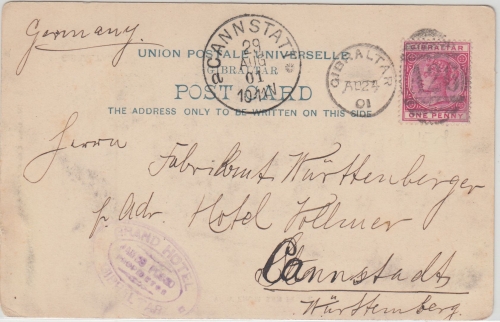 Germany.
UNION POSTALE UNIVERSELLE
GIBRALTAR
POST CARD
THE ADDRESS ONLY TO BE WRITTEN ON THIS SIDE
CANNSTATT
29
AUG
01
GIBRALTAR
AU 24
01
GIBRALTAR
ONE PENNY
Herrn Fabrikant Württemberger
p. Adr. Hotel Vollmer
Cannstadt
Württemberg.
GRAND HOTEL
GIBRALTAR